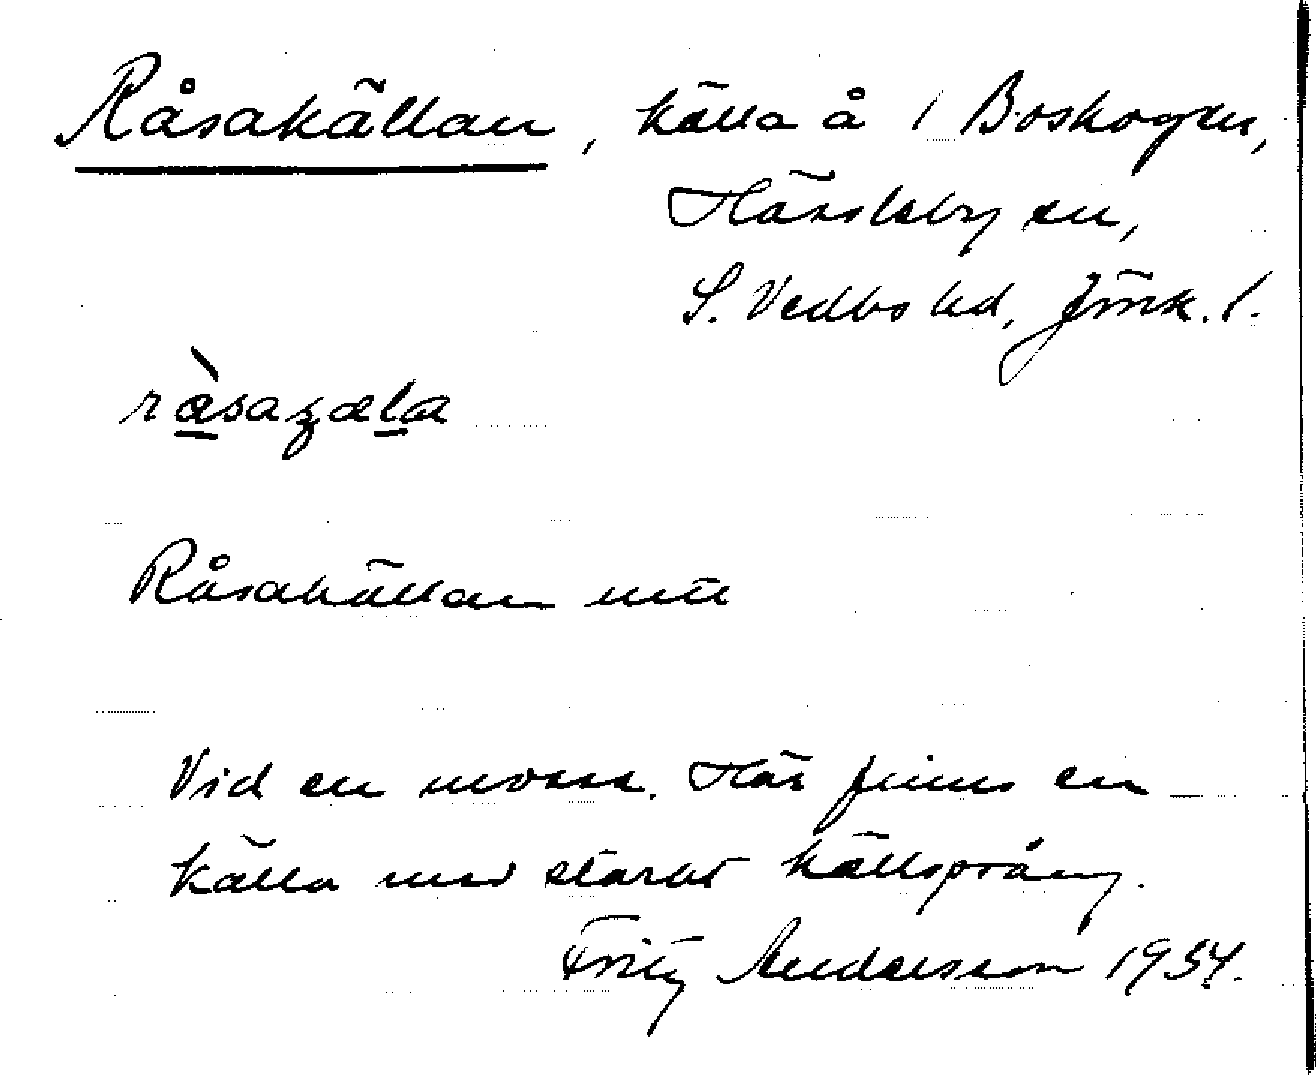 Råsakällan, källa å 1 Boskogen,
Hässlebyen,
S. Vedbo hd, Jönk. l.
råsaʒæla
Råsakällan
Vid en mosse. Här finns en
källa med starkt källsprång.
Fritz Andersson 1934.